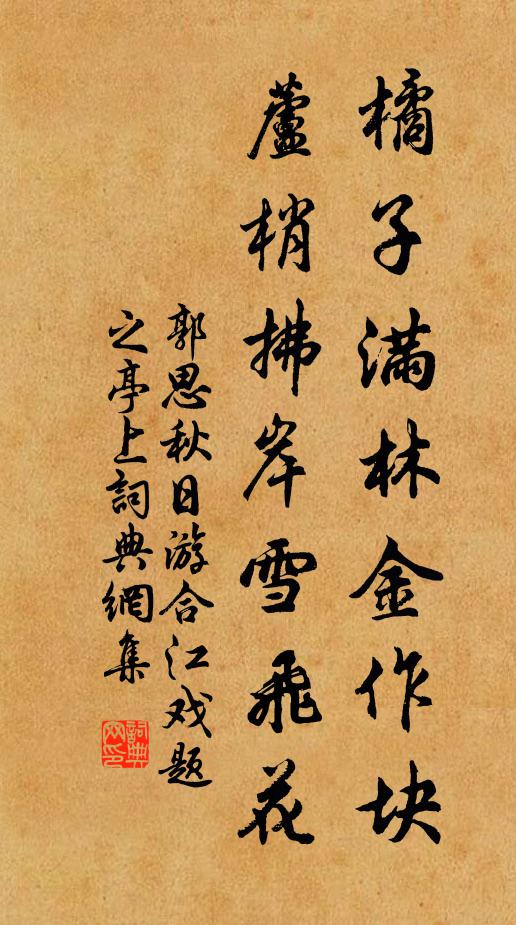 橘子满林金作块
蘆梢拂岸雪飛花
郭思秋日游合江戏题
之亭上詞典網集
詞典
网印